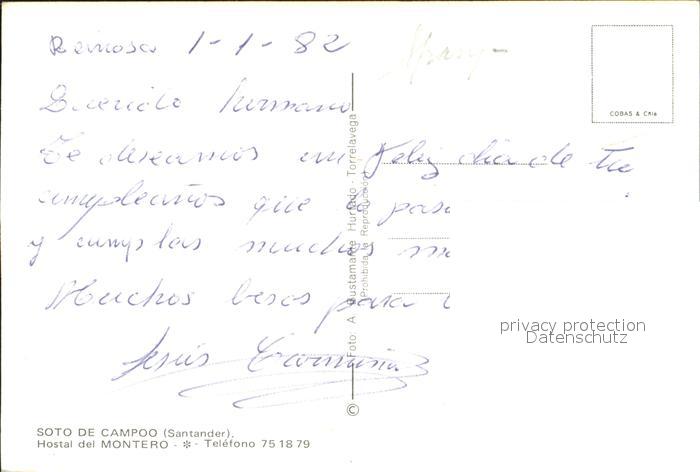 Reinosa 1-1-82
COBAS & Cñía
Querido hermano
Te deseamos un feliz dia de tu
cumpleaños que lo pas
y cumplas muchos m
Muchos besos para
Jesús
Foto: A. Bustamante Hurtado - Torrelavega
Prohibida la Reproducción
©
privacy protection
Datenschutz
SOTO DE CAMPOO (Santander).
Hostal del MONTERO - ✻ - Teléfono 75 18 79